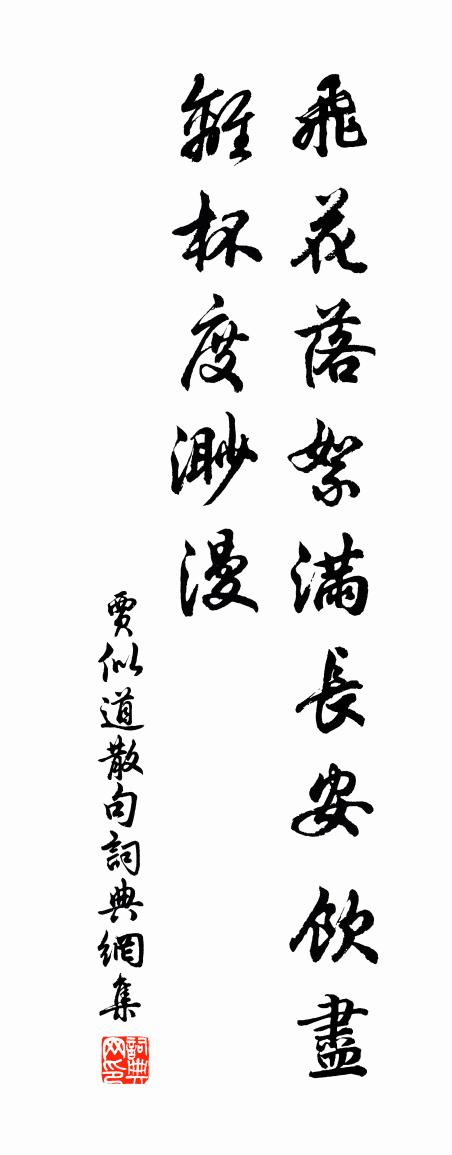 飛花落絮滿長安飲盡
離杯度渺漫
賈似道散句詞典網集
詞典網印